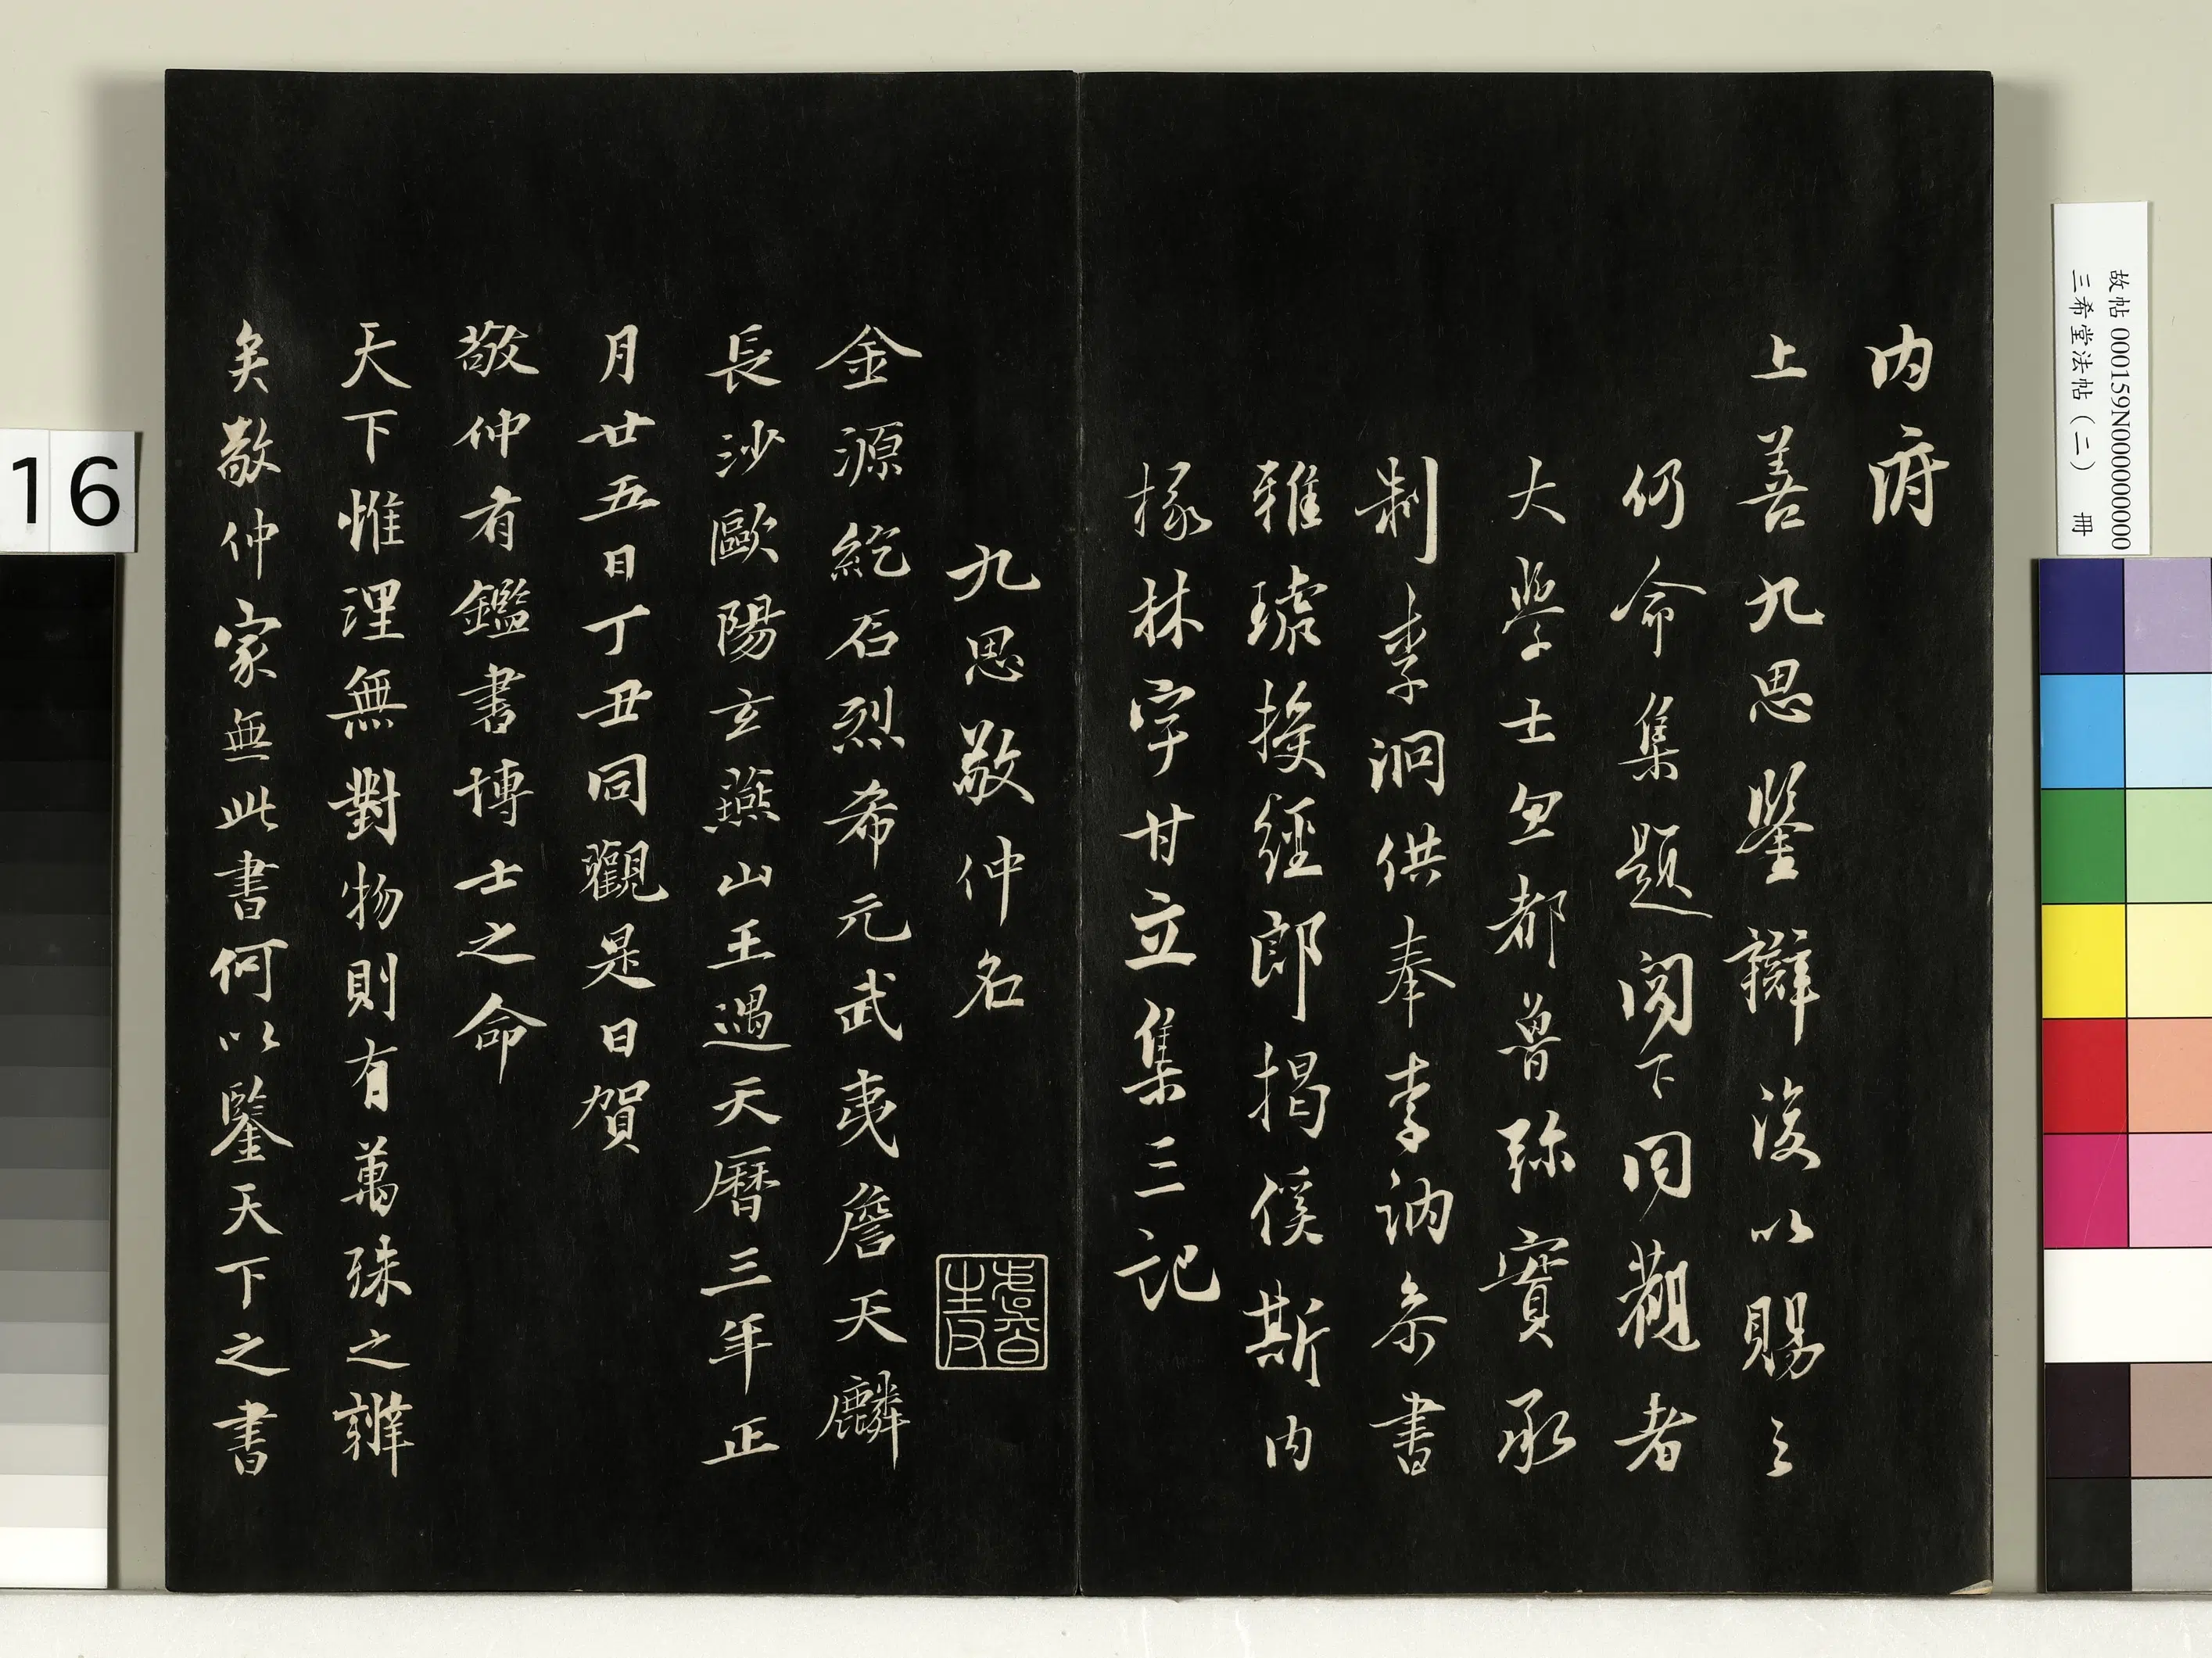 内府
上善九思鑒辯後以賜之
仍命集題閣下同觀者
大學士忽都魯弥實承
制李泂供奉李訥參書
雅琥授經郎揭傒斯内
掾林宇甘立集三記
九思敬仲名
金源紇石烈希元武夷詹天麟
長沙歐陽玄燕山王遇天曆三年正
月廿五日丁丑同觀是日賀
敬仲有鑑書博士之命
天下惟理無對物則有萬殊之辨
矣敬仲家無此書何以鑒天下之書
16
故帖 000159N000000000
三希堂法帖（二） 冊